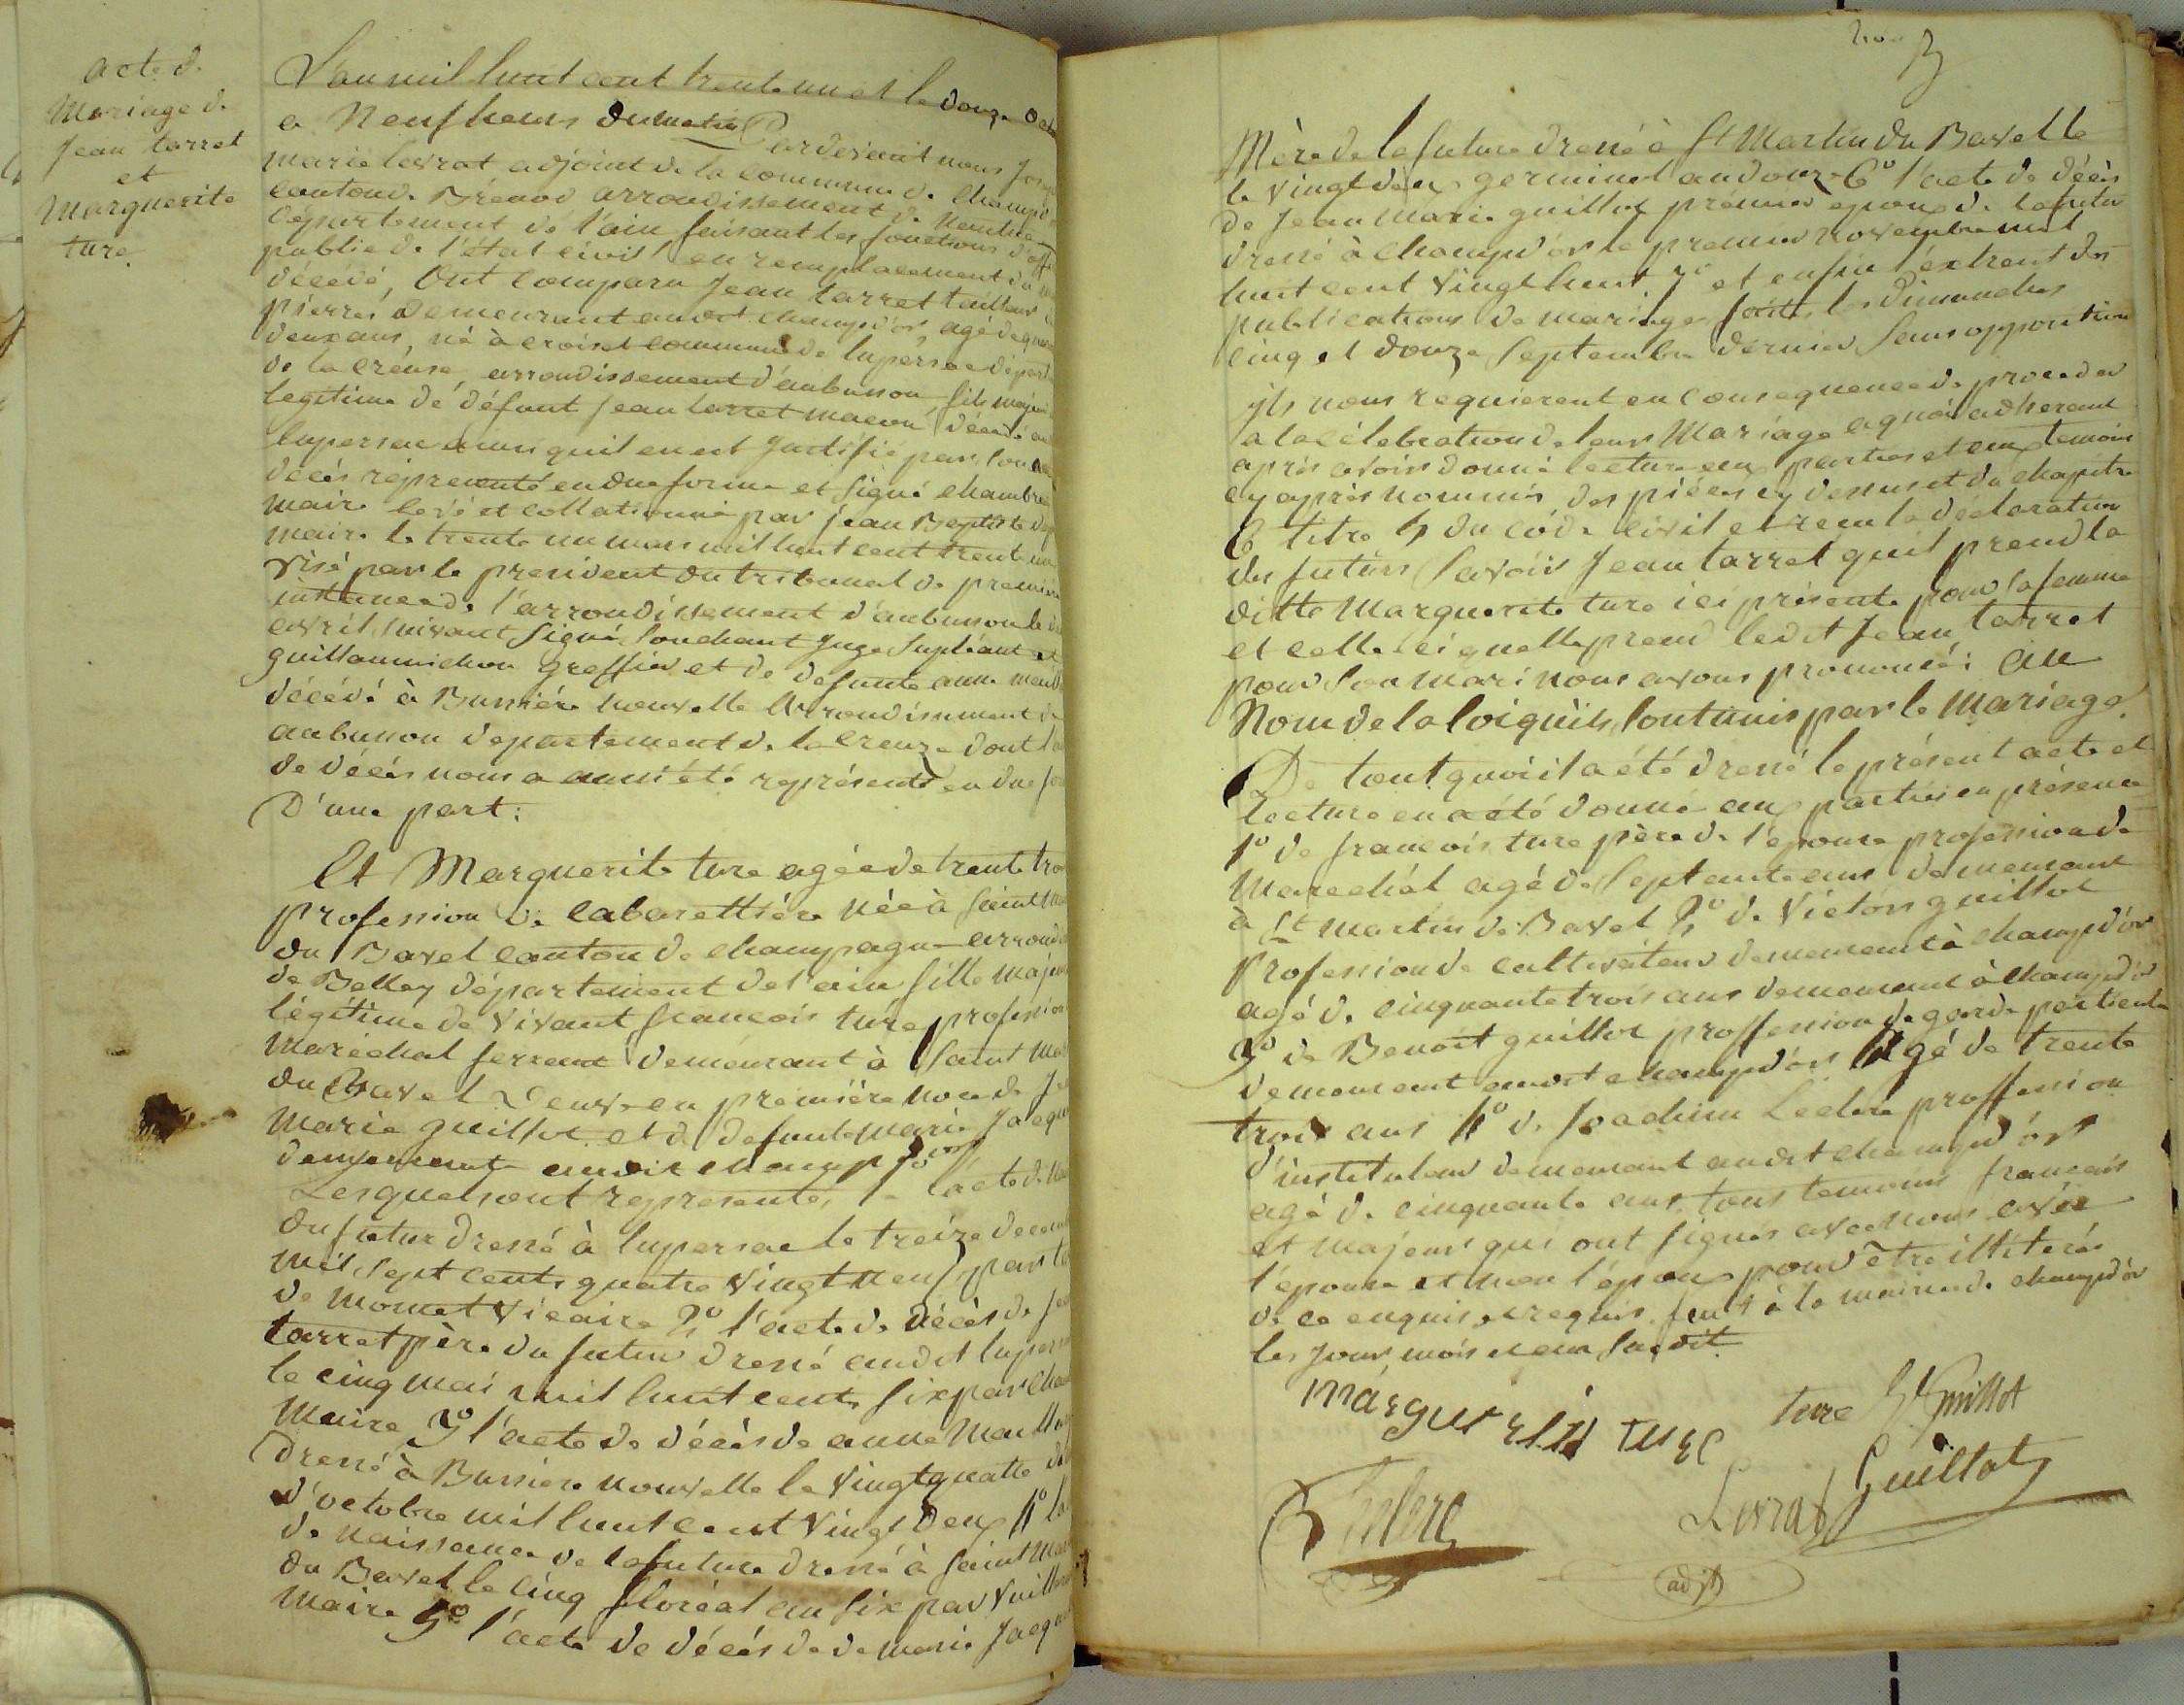 acte de
Mariage de
Jean tarret
et
Marguerite
ture.
L'an mil huit cent trente un et le douze
a Neuf heures du matin Pardevant nous
marie levrat adjoint de la commune de Champd
canton de Brénod arrondissement de Nantua
département de l'ain faisant les fonctions d'offi
public de l'état civil en remplacement du
décédé, Ont comparu Jean tarret tailleur
pierres demeurant audit champd'or, agé de
deux ans, né à croiset commune de lupersac dépar
de la créuse arrondissement d'aubusson fils maj
legitime de défunt Jean tarret macon, décédé
lupersac ainsi quil en est justifié par son
décès représenté en due forme et signé chambr
maire levé et collationné par jean Baptiste
maire le trente un mars mil huit cent trente un
visé par le president du tribunal de premie
instance de l'arrondissement d'aubusson le
avril suivant signé Souchant juge supléant et
guillaumichon greffier et de defunte anne
décédé à Bussiére nouvelle Arrondissement
aubusson departement de la creuze dont l
de décés nous a aussi été représenté en due fo
D'une part:
Et Marguerite ture agée de trente tro
profession de cabarettiére née à saint
du Bavel canton de champagne arrond
de Belley département de l'ain fille maj
légitime de vivant francois ture profession
maréchal ferrant demeurant à saint
du Bavel Veuve en premiére noce de J
Marie guillot et de defunte marie Jacqu
demeurante audit champd'or
Lesquels ont representés, 1º l'acte de
du futur dressé à lupersac le treize
mil sept cents quatre vingt neuf par
de momet vicaire 2º l'acte de décès de
tarret père du futur dressé audit lupersa
le cinq mai mil huit cents six par
maire 3º l'acte de décès de anne
dressé à Bussiere nouvelle le vingt quatre
d'octobre mil huit cent vingt deux 4º l
de naissance de la future dressé à saint
du Bavel le cinq floréal an six par
maire 5º l'acte de décés de de marie Jacqu
Mère de la future dressé à St Martin du Bavelle
le vingt deux germinal an douze 6º l'acte de décès
de Jean Marie guillot premier epoux de la futur
dressé à champd'or le premier novembre mil
huit cent vingt huit 7º et enfin l'extrait des
publications de mariage faites les dimanches
cinq et douze septembre dernier sans opposition
ils nous requierent en consequence de proceder
a la célébration de leur Mariage aquoi adherant
après avoir donné lecture aux parties et aux temoins
cy après nommés des piéces cy dessus et du chapitre
6 titre 5 du code civil et recu la déclaration
des futurs savoir Jean tarret quil prend la
ditte Marguerite ture ici présente pour sa femme
et celle ci quelle prend ledit Jean tarret
pour son mari nous avons prononcé: au
Nom de la loi quils sont unis par le Mariage
De tout quoi il a été dressé le présent acte et
lecture en a été donné aux parties en présence
1º de francois ture père de l'épouse profession de
Marechal agé de septante ans demeurant
à St martin de Bavel 2º de Victor guillot
Profession de cultivateur demeurant à champd'or
agé de cinquante trois ans demeurant à champd'or
3º de Benoit guillot proffession de garde particulie
demeurant audit champd'or agé de trente
trois ans 4º de Joachim Leclerc proffession
d'instituteur demeurant audit champd'or
agé de cinquante ans tous temoins francais
et majeurs qui ont signés avec nous avec
l'épouse et non l'époux pour être illiterés
de ce enquis et requis. fait à la mairie de champd'or
les jour, mois et an susdit
Marguerite ture ture Guillot
Leclerc Levrat Guillot
adjt